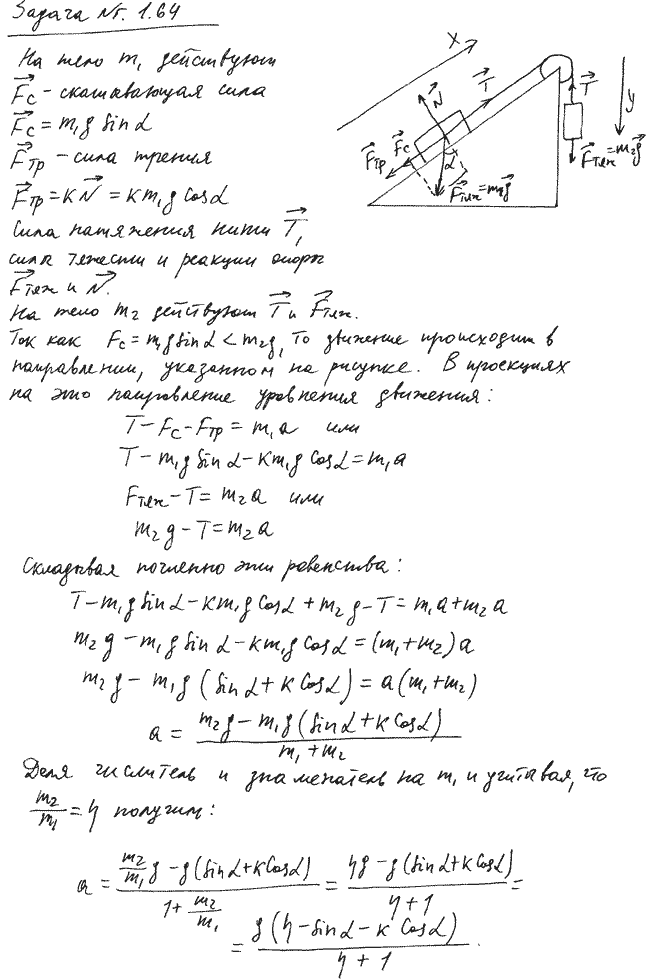 Задача № 1.64
На тело m₁ действуют
F⃗с - скатывающая сила
F⃗с = m₁g sinα
F⃗тр - сила трения
F⃗тр = kN⃗ = km₁g cosα
Сила натяжения нити T⃗,
сила тяжести и реакции опоры
F⃗тяж и N⃗.
На тело m₂ действуют T⃗ и F⃗тяж.
Так как Fс = m₁g sinα < m₂g, то движение происходит в
направлении, указанном на рисунке. В проекциях
на это направление уравнения движения:
T - Fс - Fтр = m₁a или
T - m₁g sinα - km₁g cosα = m₁a
Fтяж - T = m₂a или
m₂g - T = m₂a
Складывая почленно эти равенства:
T - m₁g sinα - km₁g cosα + m₂g - T = m₁a + m₂a
m₂g - m₁g sinα - km₁g cosα = (m₁ + m₂)a
m₂g - m₁g (sinα + k cosα) = a(m₁ + m₂)
a = (m₂g - m₁g(sinα + k cosα)) / (m₁ + m₂)
Деля числитель и знаменатель на m₁ и учитывая, что
m₂/m₁ = η получим:
a = (m₂/m₁ g - g(sinα + k cosα)) / (1 + m₂/m₁) = (ηg - g(sinα + k cosα)) / (η + 1) =
= g(η - sinα - k cosα) / (η + 1).
X
N⃗
T⃗
F⃗с
F⃗тр
α
F⃗тяж = m₁g⃗
T⃗
y
F⃗тяж = m₂g⃗